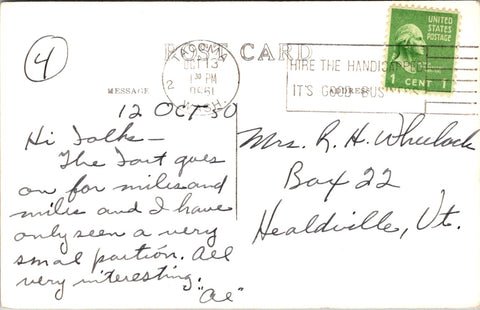 4
POST CARD
TACOMA
OCT 13
1 30 PM
WASH.
2
HIRE THE HANDICAPPED
IT'S GOOD BUSINESS
UNITED
STATES
POSTAGE
1 CENT 1
MESSAGE
ADDRESS
12 OCT 50
Hi Folks—
The Fort goes
on for miles and
miles and I have
only seen a very
smal portion. All
very interesting.
"Al"
Mrs. R. H. Wheelock
Box 22
Healdville, Vt.